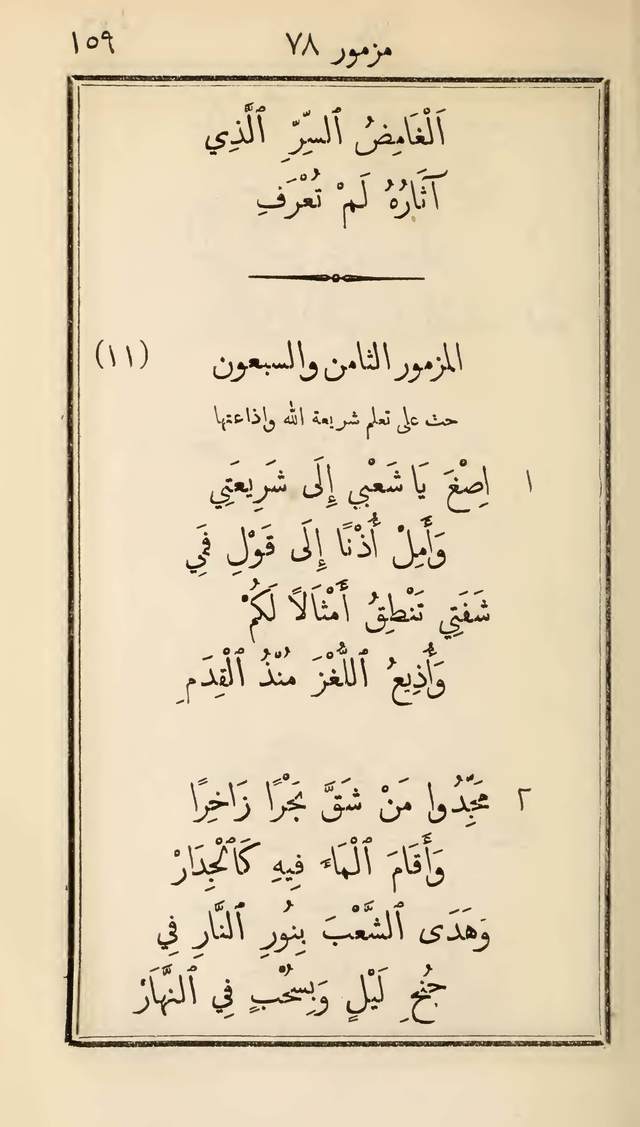 مزمور ٧٨ ١٥٩
اَلْغَامِضُ ٱلسِّرِّ ٱلَّذِي
آثَارُهُ لَمْ تُعْرَفِ
المزمور الثامن والسبعون (١١)
حث على تعلم شريعة الله واذاعتها
١ اِصْغَ يَا شَعْبِي إِلَى شَرِيعَتِي
وَأَمِلْ أُذْنًا إِلَى قَوْلِ فَمِي
شَفَتِي تَنْطِقُ أَمْثَالًا لَكُمْ
وَأُذِيعُ ٱللُّغْزَ مُنْذُ ٱلْقِدَمِ
٢ مَجِّدُوا مَنْ شَقَّ بَحْرًا زَاخِرًا
وَأَقَامَ ٱلْمَاءَ فِيهِ كَٱلْجِدَارْ
وَهَدَى ٱلشَّعْبَ بِنُورِ ٱلنَّارِ فِي
جُنْحِ لَيْلٍ وَبِسُحْبٍ فِي ٱلنَّهَارْ